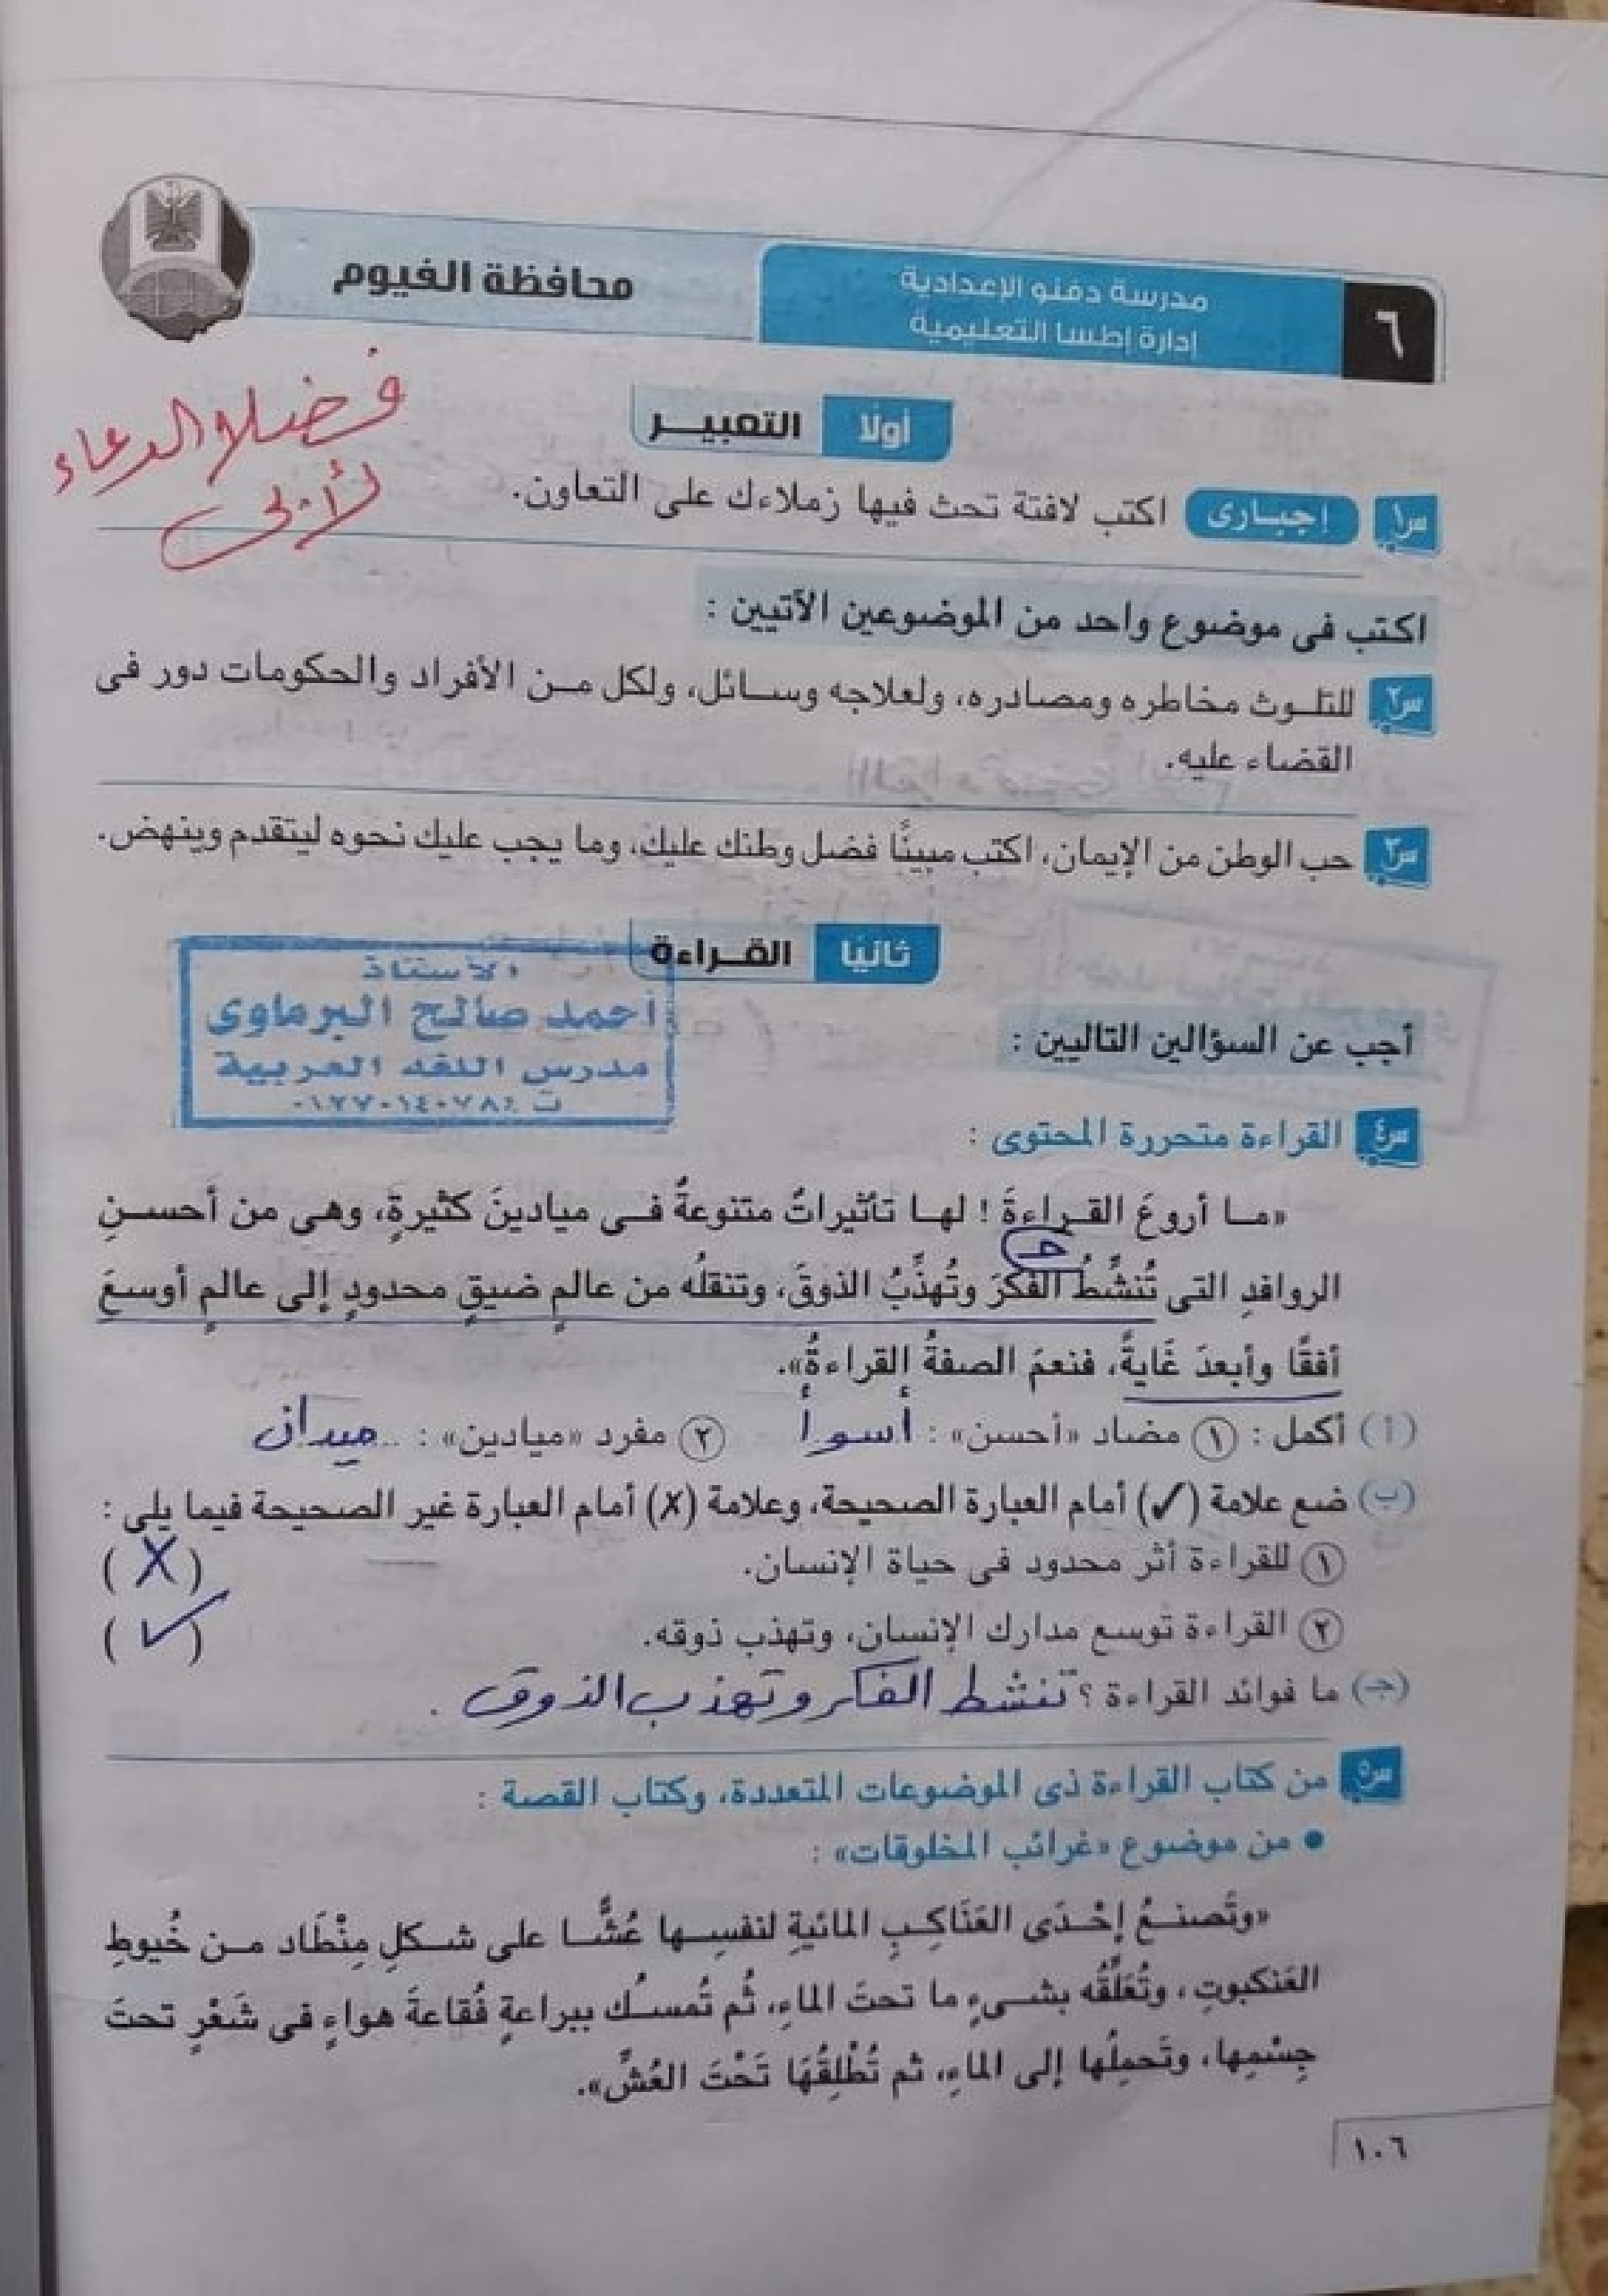 ٦
مدرسة دفنو الإعدادية
إدارة إطسا التعليمية
محافظة الفيوم
فضلا الدعاء
لأبى
أولًا التعبيــر
س١ إجبـارى اكتب لافتة تحث فيها زملاءك على التعاون.
اكتب فى موضوع واحد من الموضوعين الآتيين :
س٢ للتلــوث مخاطره ومصادره، ولعلاجه وســائل، ولكل مــن الأفراد والحكومات دور فى
القضاء عليه.
س٣ حب الوطن من الإيمان، اكتب مبينًا فضل وطنك عليك، وما يجب عليك نحوه ليتقدم وينهض.
ثانيًا القــراءة
الأستاذ
أحمد صالح البرماوى
مدرس اللغه العربية
ت ٠١٢٧٠١٤٠٧٨٤
أجب عن السؤالين التاليين :
س٤ القراءة متحررة المحتوى :
«مــا أروعَ القــراءةَ ! لهــا تأثيراتٌ متنوعةٌ فــى ميادينَ كثيرةٍ، وهى من أحســنِ
جـ
الروافدِ التى تُنشِّطُ الفكرَ وتُهذِّبُ الذوقَ، وتنقلُه من عالمٍ ضيقٍ محدودٍ إلى عالمٍ أوسعَ
أفقًا وأبعدَ غَايةً، فنعمَ الصفةُ القراءةُ».
(أ) أكمل : ١ مضاد «أحسن» : أسوأ ٢ مفرد «ميادين» : ميدان
(ب) ضع علامة (✓) أمام العبارة الصحيحة، وعلامة (✗) أمام العبارة غير الصحيحة فيما يلى :
١ للقراءة أثر محدود فى حياة الإنسان. (✗)
٢ القراءة توسع مدارك الإنسان، وتهذب ذوقه. (✓)
(جـ) ما فوائد القراءة ؟ تنشط الفكر وتهذب الذوق .
س٥ من كتاب القراءة ذى الموضوعات المتعددة، وكتاب القصة :
• من موضوع «غرائب المخلوقات» :
«وتَصنــعُ إحْــدَى العَنَاكِــبِ المائيةِ لنفسِــها عُشًّــا على شــكلِ مِنْطَاد مــن خُيوطِ
العَنكبوتِ، وتُعَلِّقُه بشــىءٍ ما تحتَ الماءِ، ثُم تُمســك ببراعةٍ فُقاعةَ هواءٍ فى شَعْرٍ تحتَ
جِسْمِها، وتَحمِلُها إلى الماءِ، ثم تُطْلِقُهَا تَحْتَ العُشِّ».
١٠٦